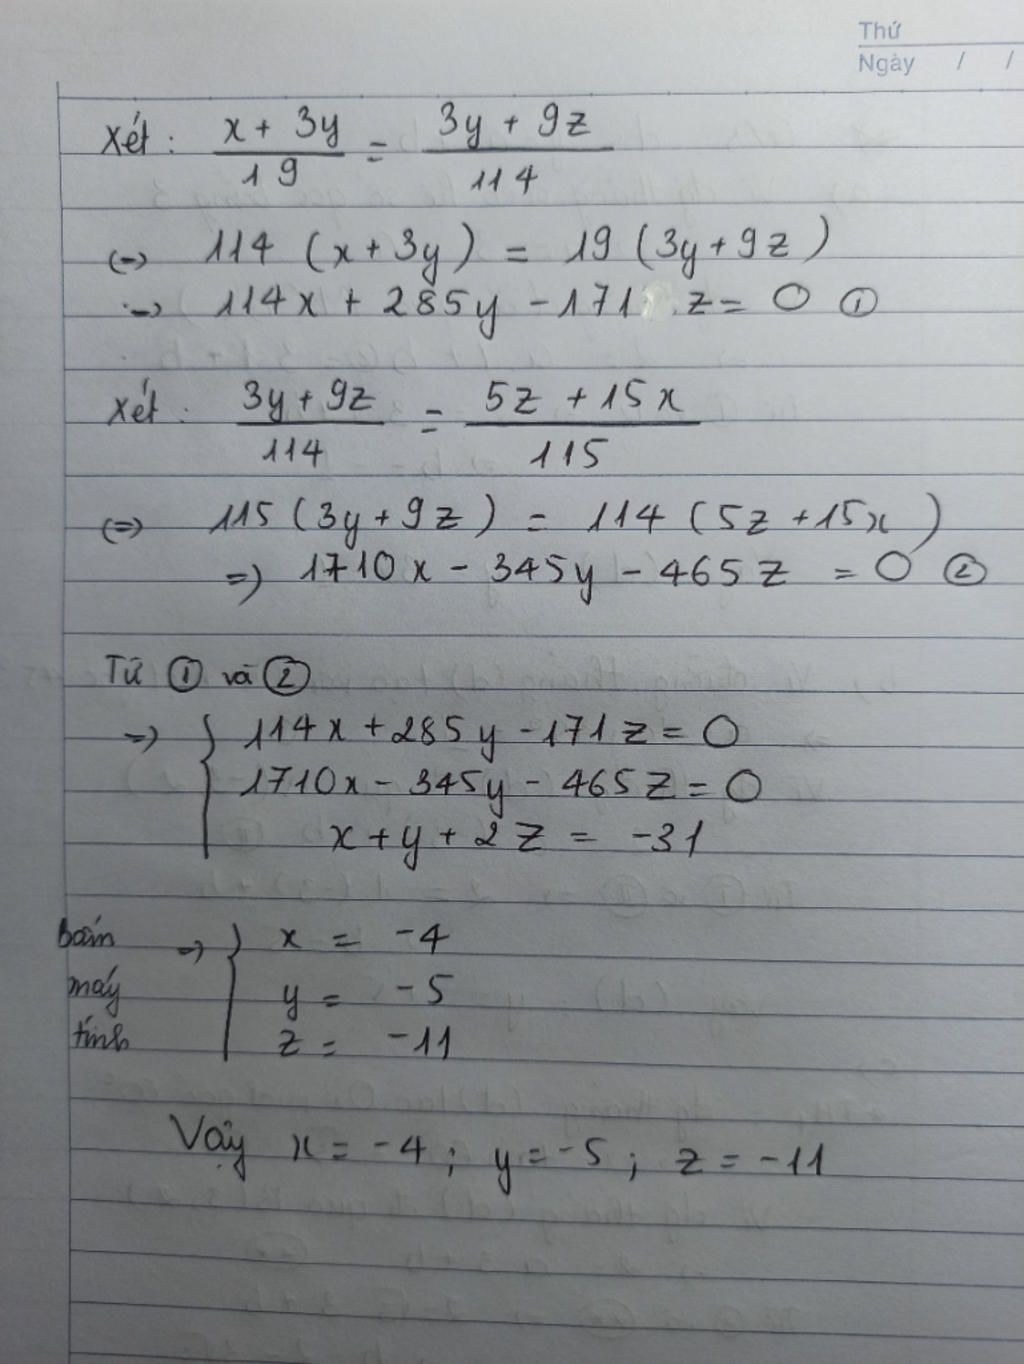 Thứ
Ngày / /
Xét: (x + 3y)/19 = (3y + 9z)/114
(=) 114 (x + 3y) = 19 (3y + 9z)
=> 114x + 285y - 171 z = 0 ①
Xét: (3y + 9z)/114 = (5z + 15x)/115
(=) 115 (3y + 9z) = 114 (5z + 15x)
=) 1710x - 345y - 465z = 0 ②
Từ ① và ②
=) { 114x + 285y - 171z = 0
1710x - 345y - 465z = 0
x + y + 2z = -31
bấm => { x = -4
máy y = -5
tính z = -11
Vậy x = -4 ; y = -5 ; z = -11